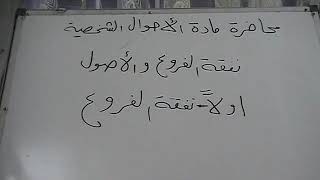 محاضرة مادة الأحوال الشخصية
نفقة الفروع والأصول
اولاً- نفقة الفروع